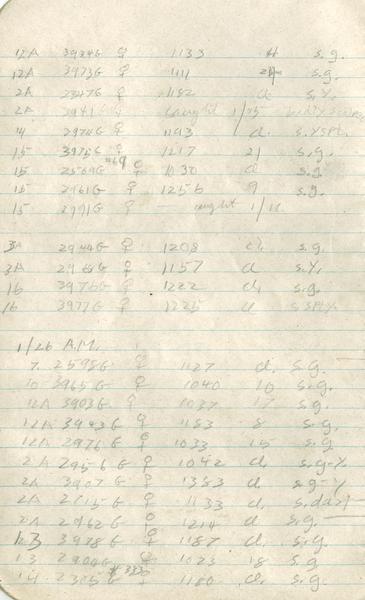 12A 3984G ♀ 1133 4 s.g.
12A 3973G ♀ 1111 s.g.
2A 2347G ♀ 1182 d s.y.
2A 3941G caught 1/25
14 2974G ♀ 1193 d. s.yspl.
15 3975G ♀ 1217 21 s.g.
15 2569G #69 ♀ 1030 d s.g.
15 2961G ♀ 1256 9 s.g.
15 3991G ♀ — caught 1/
3A 2944G ♀ 1208 d. s.g.
3A ♀ 1157 d s.y.
16 3976G ♀ 1222 d. s.g.
16 3977G ♀ 1225 d s sply.
1/26 A.M.
7. 2598G ♀ 1127 d. s.g. —
10 3965G ♀ 1040 10 s.g.
12A 3903G ♀ 1037 17 s.g.
12A 3943G ♀ 1183 8 s.g.
12A 2976G ♀ 1033 15 s.g.
2A 2956G ♀ 1042 d. s.g-y.
2A 3907 ♀ 1383 d s g-y
2A 2715G ♀ 1133 d. s.dark
2A 2962G ♀ 1214 d s.g. —
13 3978G ♀ 1187 d. s.g.
13 2900G ♀ 1023 18 s.g.
14 2305G #333 ♀ 1180 d. s.g.